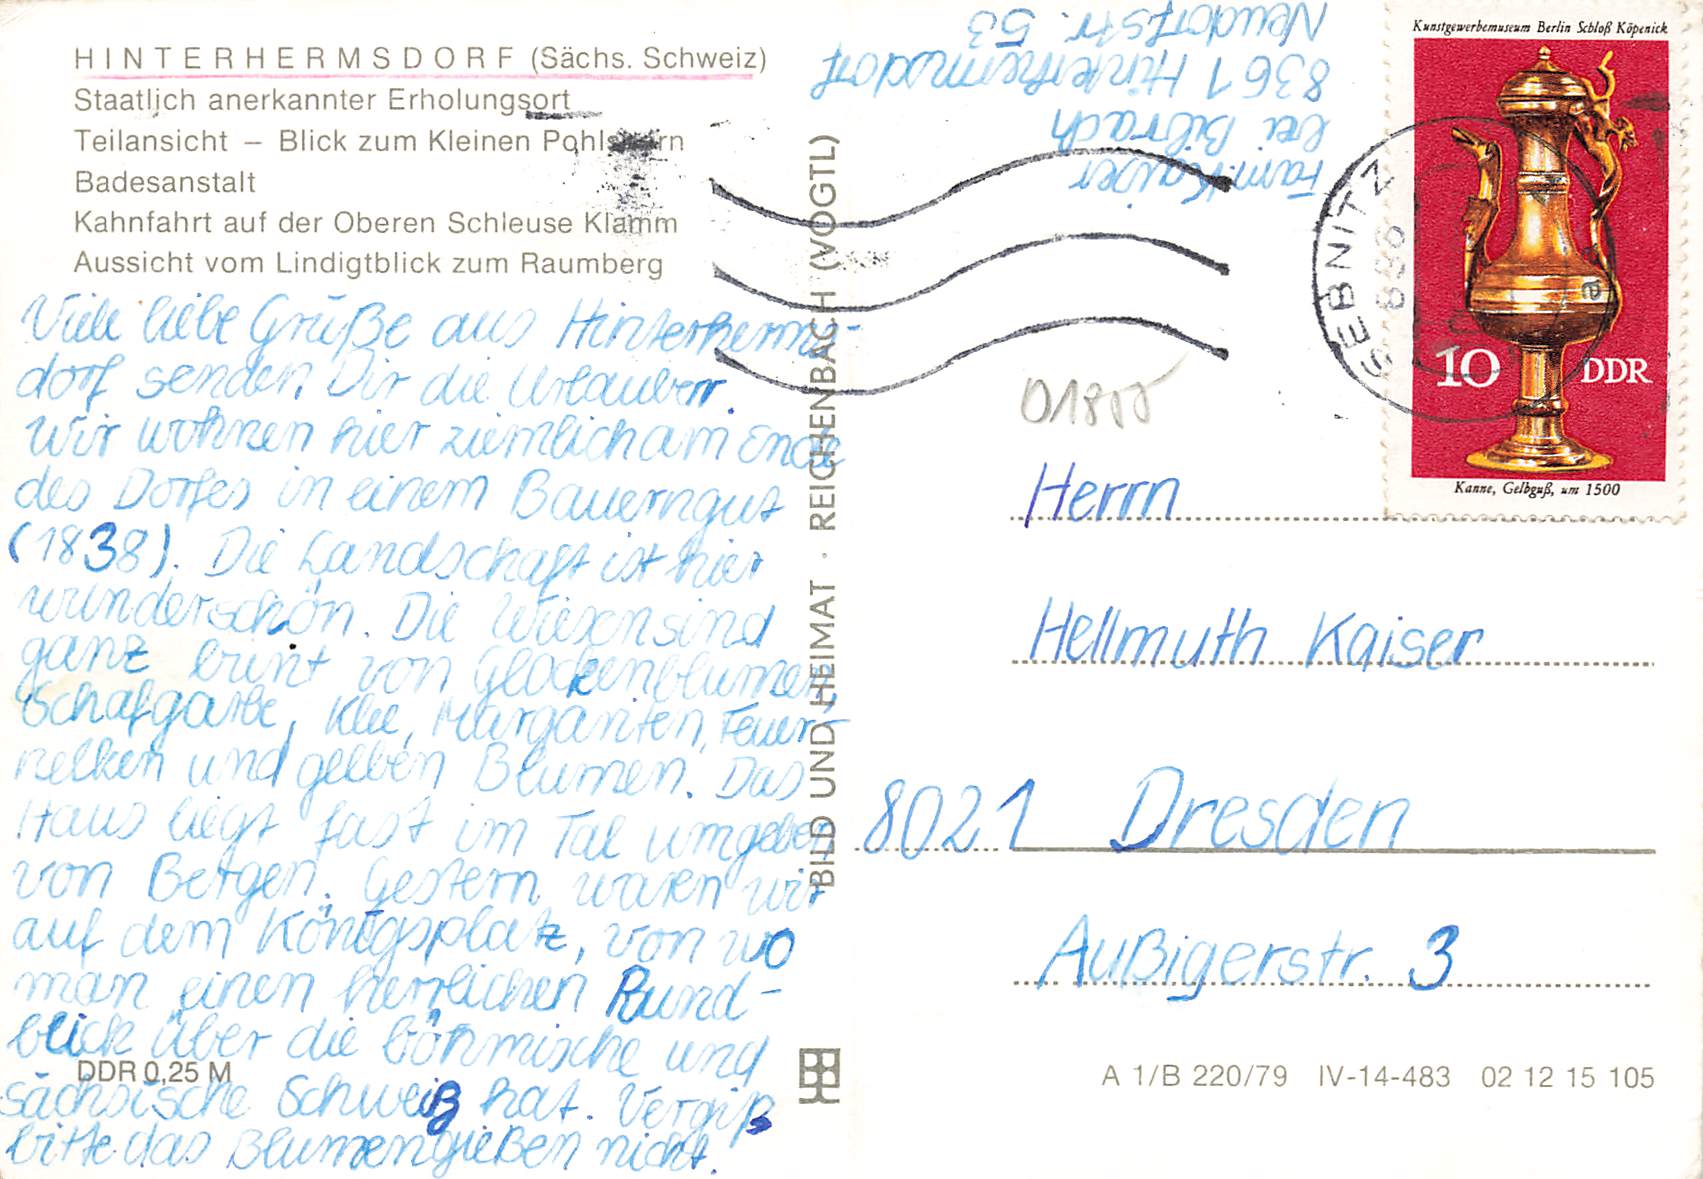 HINTERHERMSDORF (Sächs. Schweiz)
Staatlich anerkannter Erholungsort
Teilansicht – Blick zum Kleinen Pohlshorn
Badesanstalt
Kahnfahrt auf der Oberen Schleuse Klamm
Aussicht vom Lindigtblick zum Raumberg
Viele liebe Grüße aus Hinterherms-
dorf senden Dir die Urlauber.
Wir wohnen hier ziemlich am Ende
des Dorfes in einem Bauerngut
(1838). Die Landschaft ist hier
wunderschön. Die Wiesen sind
ganz bunt von Glockenblumen,
Schafgarbe, Klee, Marganiten, Feuer-
nelken und gelben Blumen. Das
Haus liegt fast im Tal umgeben
von Bergen. Gestern waren wir
auf dem Königsplatz, von wo
man einen herrlichen Rund-
blick über die böhmische und
sächsische Schweiß hat. Vergiß
bitte das Blumengießen nicht.
DDR 0,25 M
BILD UND HEIMAT · REICHENBACH (VOGTL)
Fam. Kaiser
bei Biltrach
8361 Hinterhermsdorf
Neudorfstr. 53
Kunstgewerbemuseum Berlin Schloß Köpenick
10 DDR
Kanne, Gelbguß, um 1500
SEBNITZ
836
a
D1800
Herrn
Hellmuth Kaiser
8021 Dresden
Außigerstr. 3
A 1/B 220/79 IV-14-483 02 12 15 105